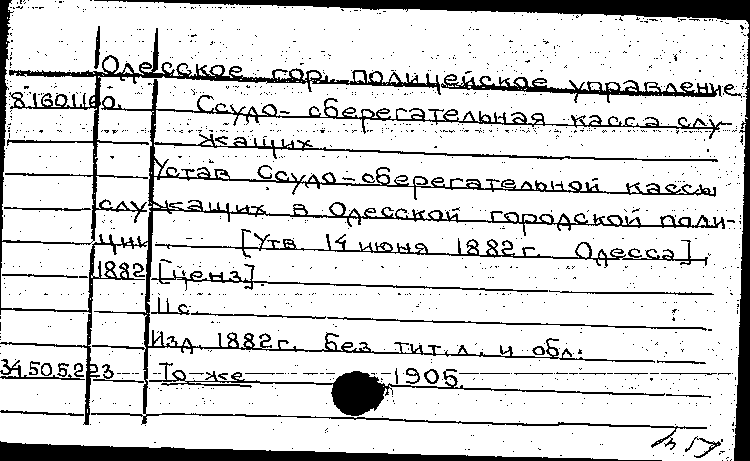 Одесское гор. полицейское управление
8.160.1.60. Ссудо-сберегательная касса слу-
жащих.
Устав Ссудо-сберегательной кассы
служащих в Одесской городской поли-
ции. [Утв. 14 июня 1882 г. Одесса],
1882 [ценз].
11 с.
Изд. 1882 г. без тит. л. и обл.
34.50.5.223 То же 1905